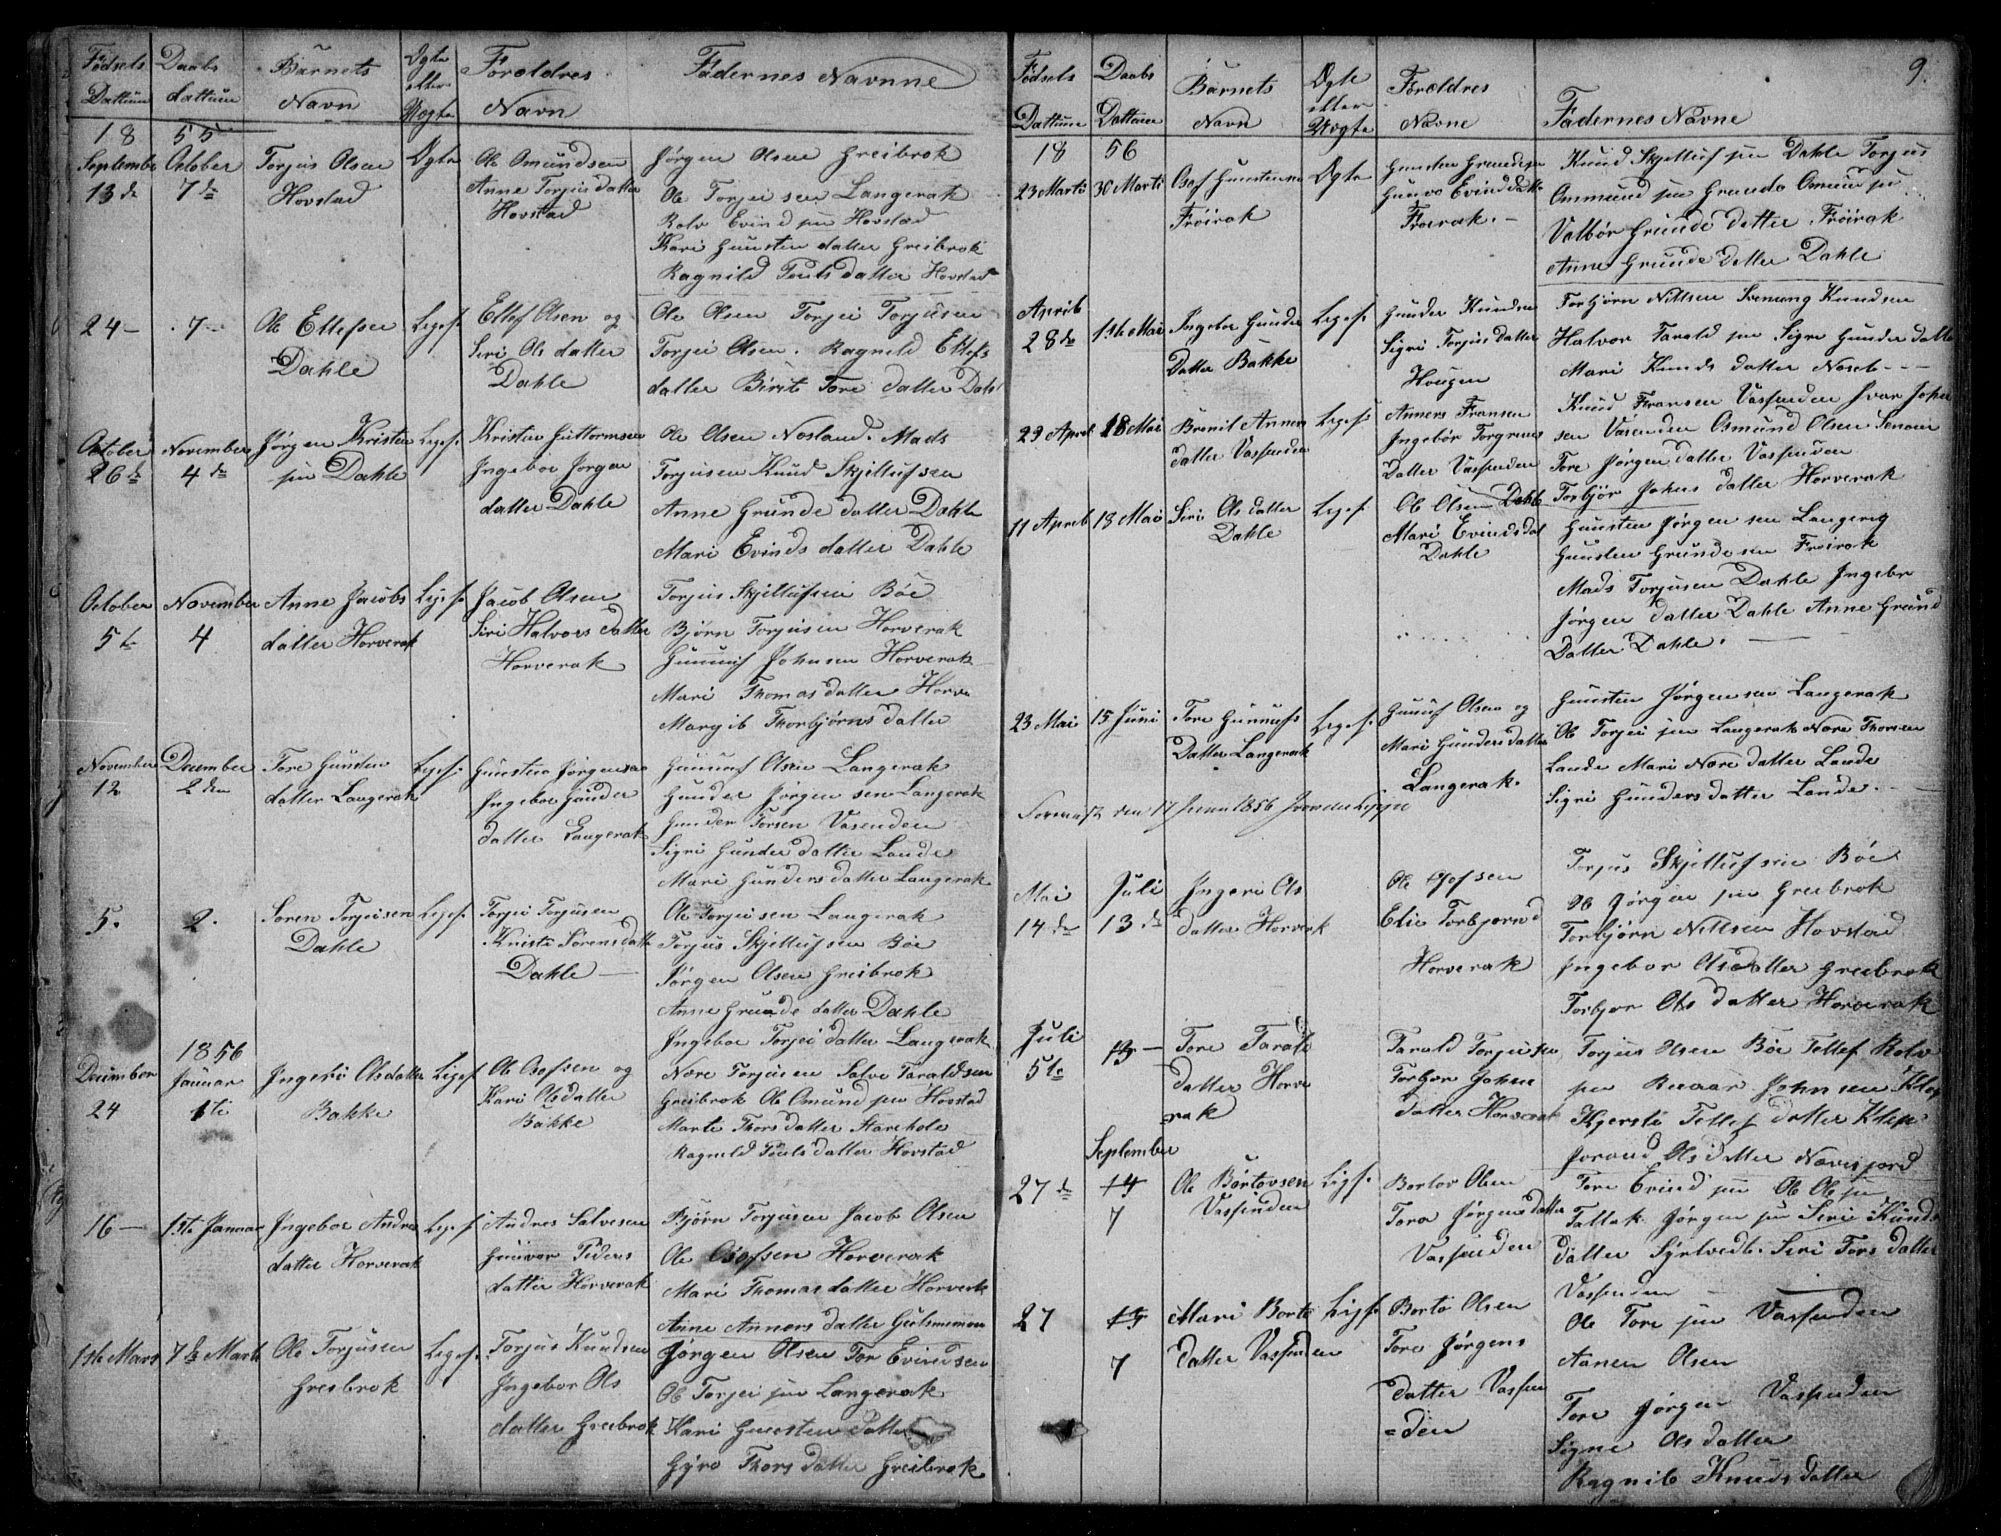 Fødsels Dattum
Daabs dattum
Barnets Navn
Ægte eller Uægte
Forældres Navn
Fadernes Navnne
18 55
September 13de
October 7de
Torjus Olsen
Hovstad
Ægte
Ole Omundsen
Anne Torjusdatter
Hovstad
Jørgen Olsen Greibrok
Ole Torjeisen Langerak
Rolv Evindsen Hovstad
Kari Gunsten datter Greibrok
Ragnild Pouls datter Hovstad
24 —
7 —
Ole Ellefsen
Dahle
Liges.
Ellef Olsen og
Siri Ols datter
Dahle
Ole Olsen Torjei Torjusen
Torjei Olsen. Ragnild Ellefs
datter Birit Tore datter Dahl
October 26de
November 4de
Jørgen Kristen
sen Dahle
Ligef.
Kristen Guttormsen
Ingebor Jørgen
datter Dahle
Ole Olsen Nosland. Mads
Torjusen Knud Skjellufsen
Anne Grunde datter Dahle
Mari Evinds datter Dahle
October 5te
November 4
Anne Jacobs
datter Horverak
Ligef.
Jacob Olsen
Siri Halvors datter
Horverak
Torjus Skjellufsen Bøe
Bjørn Torjusen Horverak
Gunnuf Johnsen Horverak
Mari Thomas datter Horve
Margib Thorbjørns datter
November 12
December 2den
Tore Gunsten
datter Langerak
Ligef.
Gunsten Jørgensen
Ingebor Gunder
datter Langerak
Gunnuf Olsen Langerak
Gunder Jorgensen Langerak
Gunder Torsen Vasenden
Sigri Gunder datter Lande
Mari Gunders datter Langerak
5.
2.
Søren Torjeisen
Dahle
Ligef.
Torjei Torjusen
Kristi Sørens datt
Dahle —
Ole Torjeisen Langerak
Torjus Skjellufsen Bøe
Jørgen Olsen Greibrok
Anne Grunde datter Dahle
Ingebor Torjei datter Langerak
December 24
1856
Januar 1te
Ingebor Olsdatter
Bakke
Ligef
Ole Osofsen og
Kari Olsdatter
Bakke
Nære Torjusen Salve Taraldsen
Greibrok Ole Omundsen Hovstad
Marte Thorsdatter Starehole
Ragnild Pouls datter Hovstad
16 —
1ste Januar
Ingebor Andres
datter Horverak
Ligef
Andres Salvesen
Gunvor Peders
datter Horverak
Bjørn Torjusen Jacob Olsen
Ole Osofsen Horverak
Mari Thomas datter Horverak
Anne Anners datter
1ste Mars
7de Marti
Ole Torjusen
Greibrok
Ligef.
Torjus Knudsen
Ingebor Ols
datter Greibrok
Jorgen Olsen Tor Evindsen
Ole Torjeisen Langerak
Kari Gunsten datter
Gyro Thors datter Greibrok
9.
Fødsels Dattum
Daabs Dattum
Barnets Navn
Ægte eller Uægte
Forældres Navne
Fadernes Navne
18 56
23 Marti
30 Marti
Osof Gunstensen
Frøirak
Ægte
Gunsten Grundesen
Gunvo Evinddatte
Frøirak. —
Knud Skjellufsen Dahle Torjus
Ommundsen Grunde Omundsen
Valbør Grunde datter Frøirak
Anne Grunde datter Dahle
Aprili 28de
1ste Mai
Ingebor Gunder
Datter Bakke
Ligef.
Gunder Knudsen
Sigri Torjus datter
Hougen
Torbjørn Nillsen Svenung Knudsen
Halvor Taraldsen Sigri Gunder datte
Mari Knuds datter Noseb - - -
29 Apreli
18 Mai
Brenil Anners
datter Vassenden
Ligef.
Anners Fransen
Ingebør Torgrims
Datter Vassenden
Knud Fransen Vassenden Ivar John
sen Vasenden Osmund Olsen
Tore Jørgen datter Vassenden
Torbjør Johns datter Horverak
11 Apreli
18 Mai
Siri Ols datter
Dahle
Ligef.
Ole Olsen Dahle
Mari Evindsdat
Dahle
Gunsten Jørgensen Langerag
Gunsten Grundesen Frøirak
Mads Torjusen Dahle Ingebr
Jørgen datter Dahle Anne Grund
Datter Dahle. —
23 Mai
15 Juni
Tore Gunnufs
Datter Langerak
Ligef.
Gunuf Olsen og
Mari Gunders datter
Langerak.
Gunsten Jørgensen Langerak
Ole Torjeisen Langerak Nære Thorsen
Lande Mari Nære datter Lande
Sigri Gunders datter Lande. —
den 17 Juni 1856
Mai 14de
Juli 13de
Ingeri Ols
datter Horverak
Ole Osofsen
Elie Torbjørnsd
Horverak
Torjus Skjellufsen Bøe
Ole Jørgensen Greibrok
Torbjørn Nillsen Hovstad
Ingebor Olsdatter Greibrok
Torbjor Ols datter Horverak
Juli 5te
13 —
Tore Tarald
datter Horve
rak
Tarald Torjusen
Torbjør Johns
datter Horverak
Torjus Olsen Bøe Tellef Rolv
sen Johnsen Klep
Kjersti Tellef datter Klep
Jorand Ols datter
27de
September
14
7
Ole Børtovsen
Vassenden
Ligf.
Bortov Olsen
Tora Jørgens datter
Vassenden
Tore Evindsen Ole Olesen
Tallak Jørgensen Siri Knuds
datter Siri Tors datter
Vassenden —
27
14
7
Mari Borto
datter Vassenden
Ligf.
Borto Olsen
Tore Jørgens
datter Vassen
=den
Ole Toresen Vassenden
Aanen Olsen
Tore Jørgen Vassenden
Signe Olsdatter
Ragnil Knudsdatter